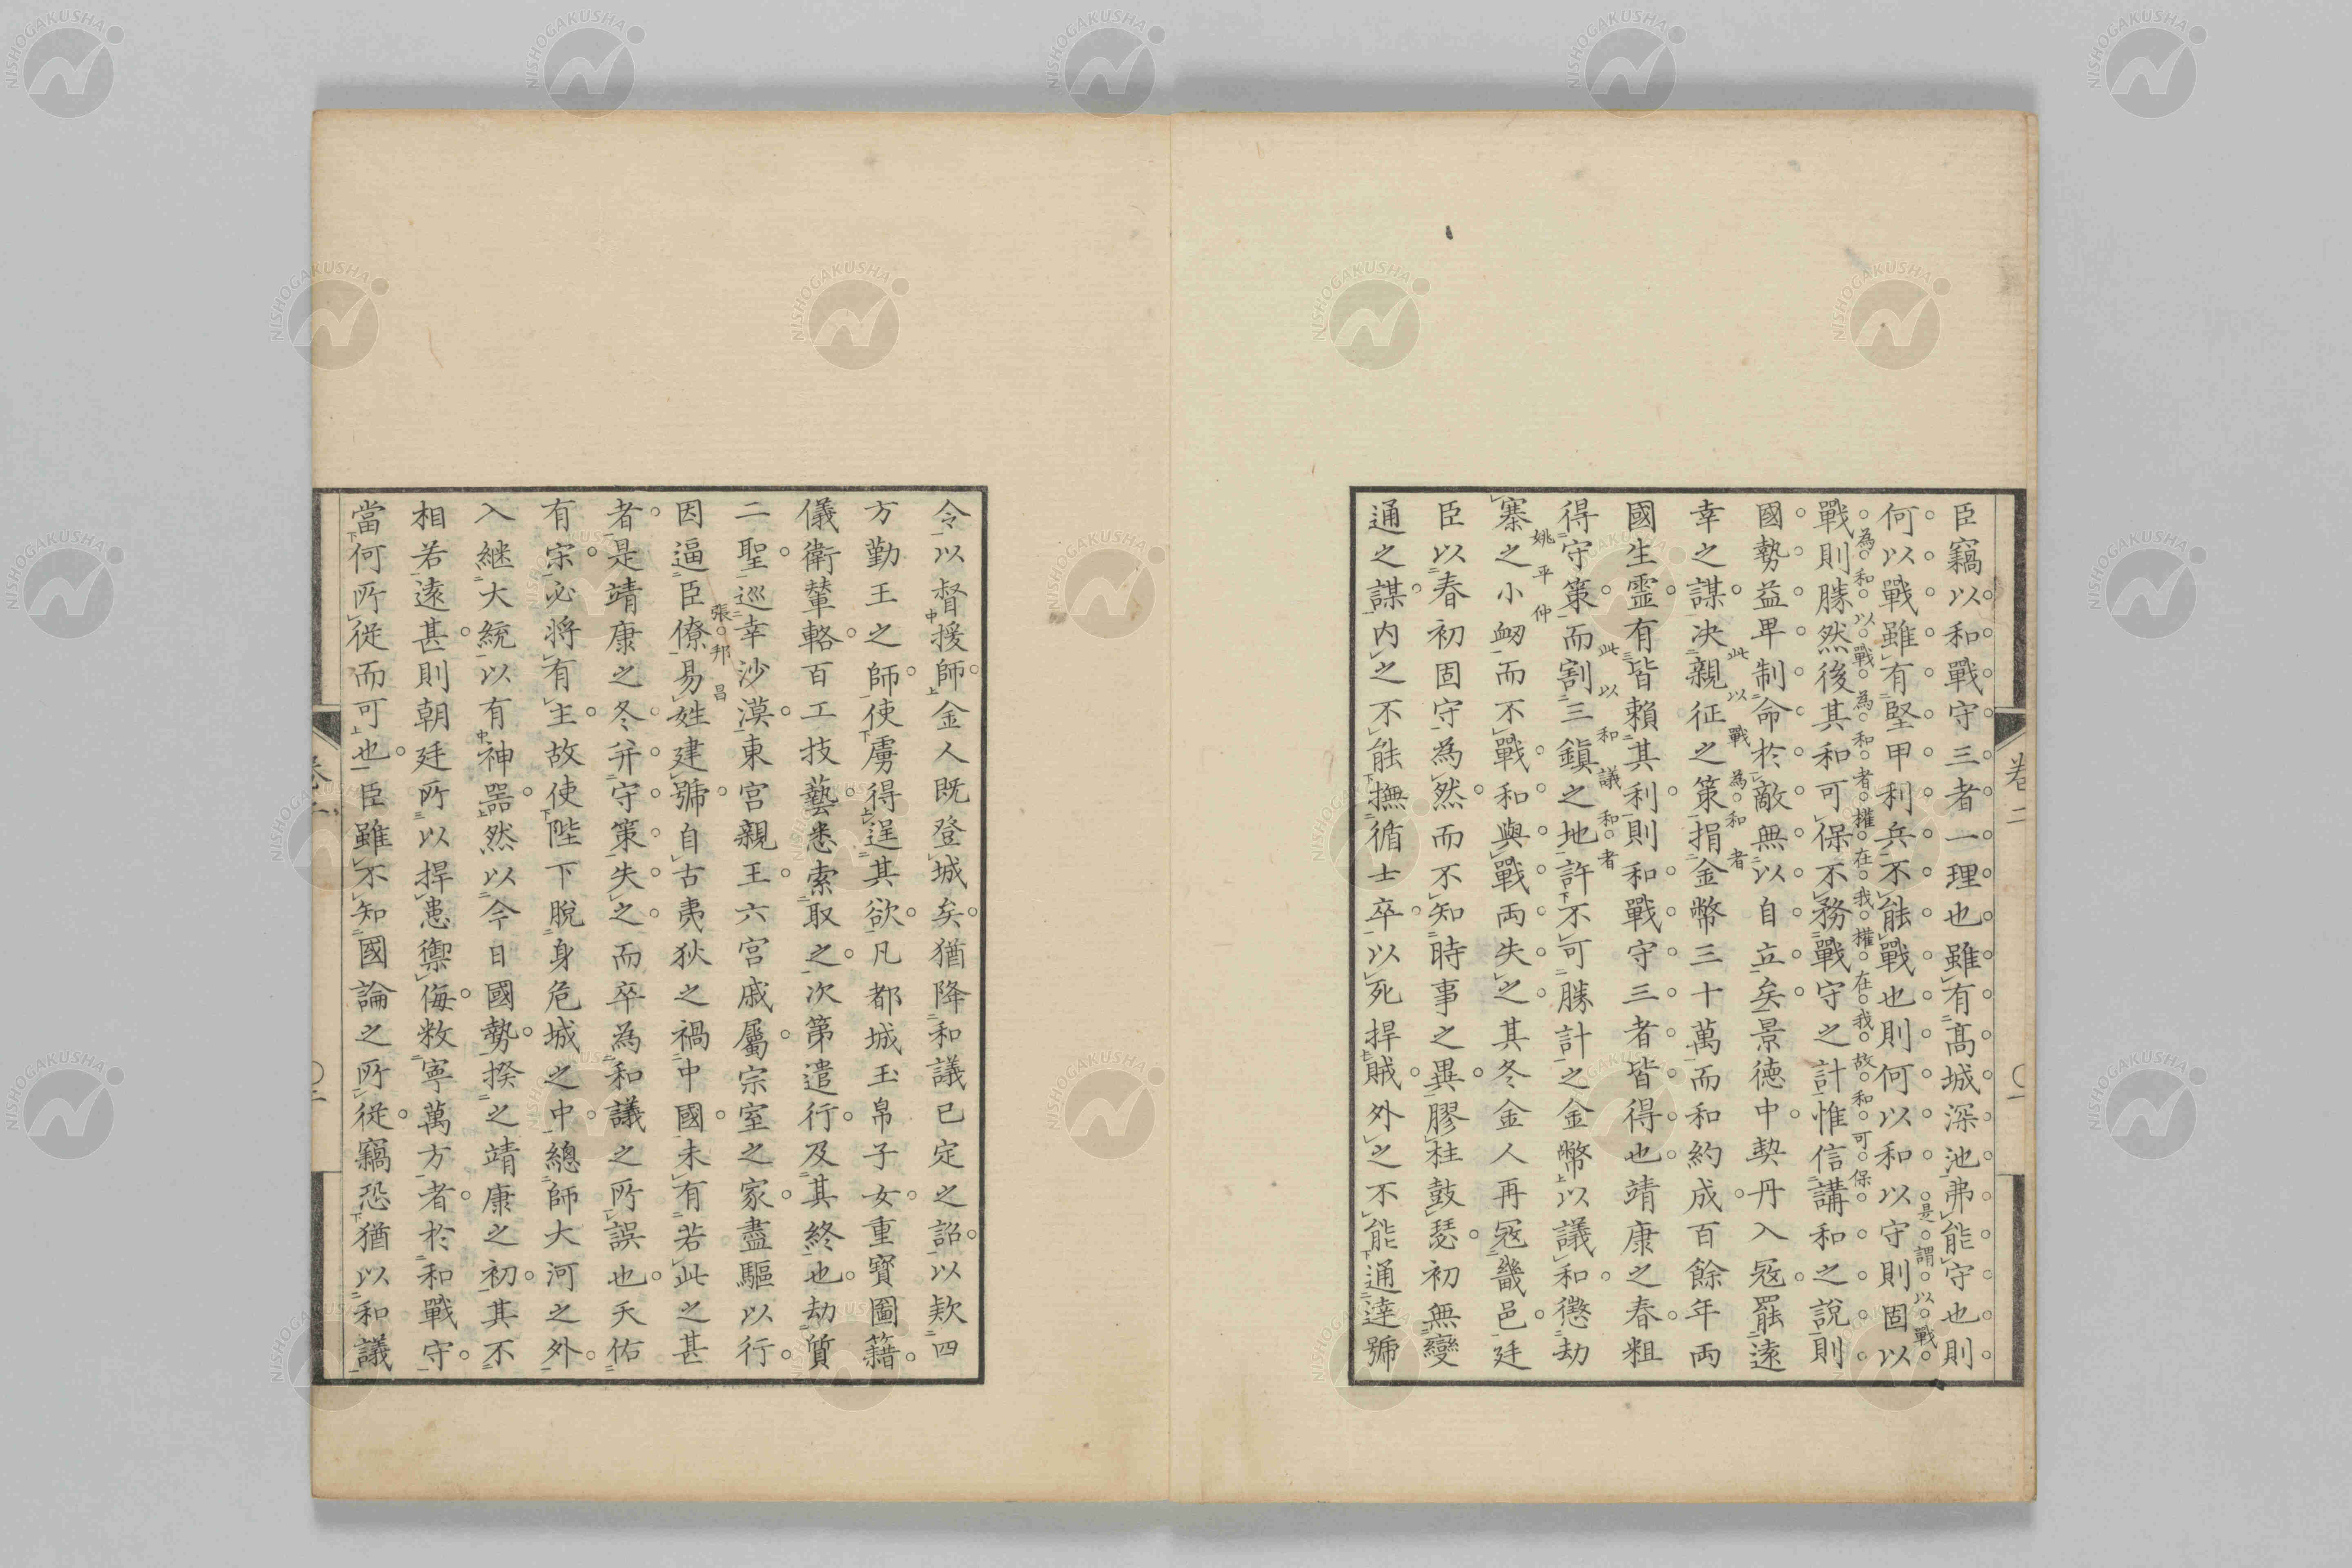 臣竊以和戰守三者一理也雖有高城深池弗能守也則
何以戰雖有堅甲利兵不能戰也則何以和以守則固以
是謂以戰
戰則勝然後其和可保不務戰守之計惟信講和之說則
為和以戰為和者權在我權在我故和可保
國勢益卑制命於敵無以自立矣景德中契丹入冦罷遠
幸之謀决親征之策捐金幣三十萬而和約成百餘年両
此以戰為和者
國生霊有皆賴其利則和戰守三者皆得也靖康之春粗
得守策而割三鎮之地許不可勝計之金幣以議和懲劫
此以和議和者
寨之小衂而不戰和與戰両失之其冬金人再冦畿邑廷
姚平仲
臣以春初固守為然而不知時事之異膠柱鼓瑟初無變
通之謀内之不能撫循士卒以死捍賊外之不能通達號
卷二
〇一
令以督援師金人既登城矣猶降和議已定之詔以欵四
方勤王之師使虜得逞其欲凡都城玉帛子女重寳圖籍
儀衛輦輅百工技藝悉索取之次第遣行及其終也劫質
二聖巡幸沙漠東宮親王六宮戚屬宗室之家盡驅以行
因逼臣僚易姓建號自古夷狄之禍中國未有若此之甚
張邦昌
者是靖康之冬并守策失之而卒為和議之所誤也天佑
有宋必将有主故使陛下脫身危城之中總師大河之外
入継大統以有神噐然以今日國勢揆之靖康之初其不
相若遠甚則朝廷所以捍患禦侮敉寧萬方者於和戰守
當何所従而可也臣雖不知國論之所従竊恐猶以和議
NISHOGAKUSHA